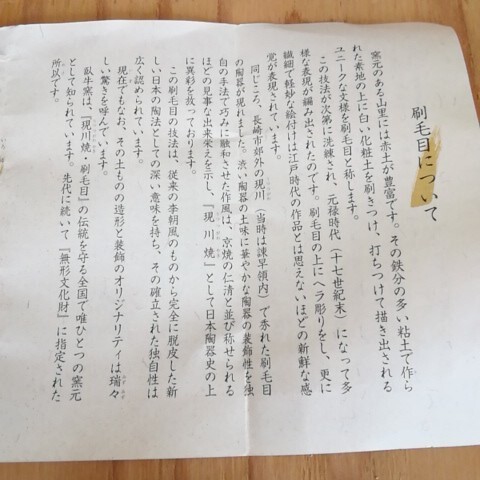 刷毛目について
窯元のある山里には赤土が豊富です。その鉄分の多い粘土で作ら
れた素地の上に白い化粧土を刷きつけ、打ちつけて描き出される
ユニークな文様を刷毛目と称します。
この技法が次第に洗練され、元禄時代（十七世紀末）になって多
様な表現が編み出されたのです。刷毛目の上にヘラ彫りをし、更に
繊細で軽妙な絵付けは江戸時代の作品とは思えないほどの新鮮な感
覚が表現されています。
同じころ、長崎市郊外の現川（当時は諫早領内）で赤れた刷毛目
の陶器が現れました。渋い陶器の土味に華やかな陶器の装飾性を独
自の手法で巧みに融和させた作風は、京焼の仁清と並び称せられる
ほどの見事な出来栄えを示し、『現川焼』として日本陶器史の上
に異彩を放っております。
この刷毛目の技法は、従来の李朝風のものから完全に脱皮した新
しい日本の陶法としての深い意味を持ち、その確立された独自性は
広く認められています。
現在でもなお、その土ものの造形と装飾のオリジナリティは瑞々
しい驚きを呼んでいます。
臥牛窯は、『現川焼 刷毛目』の伝統を守る全国で唯ひとつの窯元
として知られています。先代に続いて、『無形文化財』に指定された
所以です。